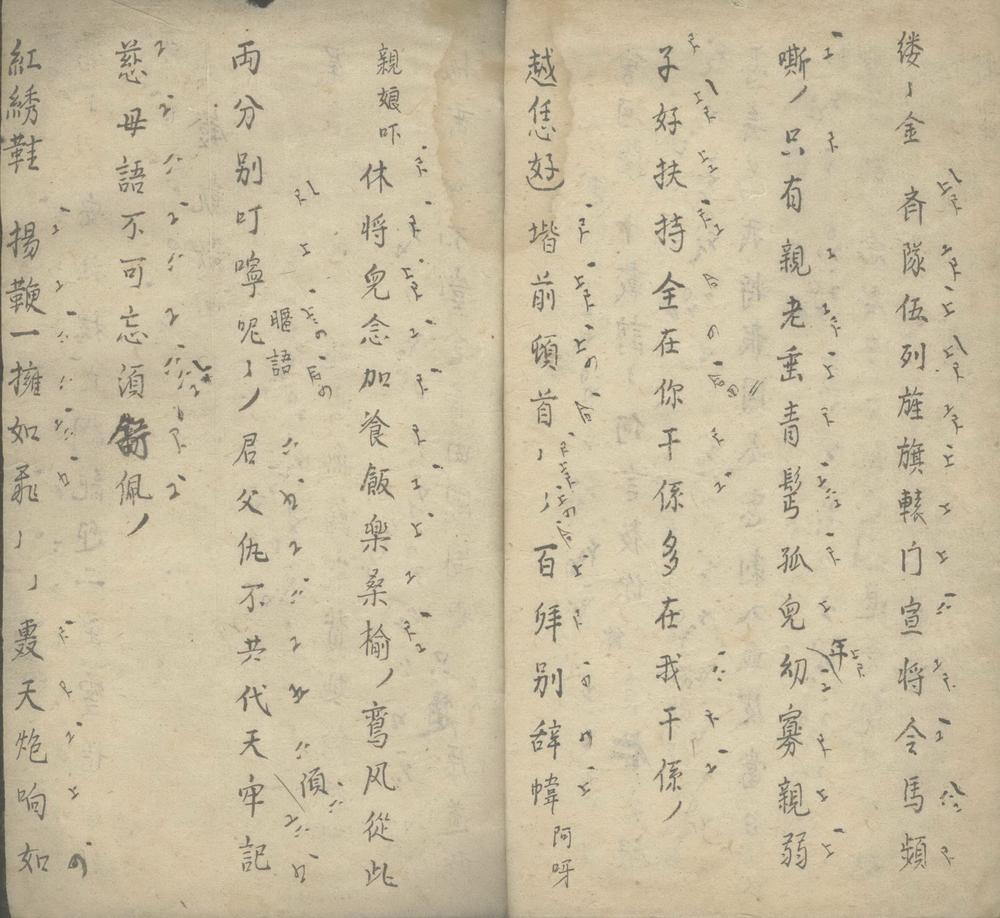 缕丶金 斉隊伍列旌旗轅门宣将令馬頻
嘶丶只有親老垂青髩孤兒幼寡親弱
年
子好扶持全在你干係多在我干係丶
越恁好堦前頓首丶丶百拜别辞幃阿呀
親娘吓休将兒念加飡飯楽桑榆丶鸾风從此
両分别叮嚀呢丶丶君父仇不共代天牢記
嘔語
須
慈母語不可忘須佩丶
紅綉鞋 揚鞭一擁如飛丶丶轟天炮响如